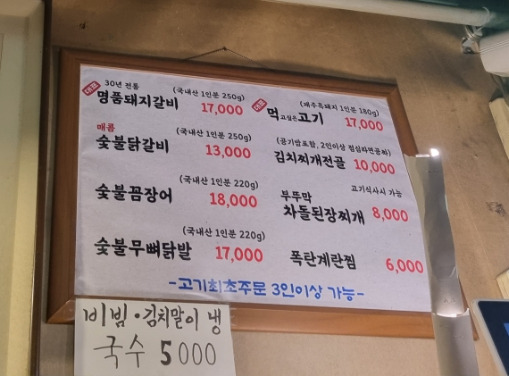 30년 전통 (국내산 1인분 250g)
명품돼지갈비 17,000
매콤 (국내산 1인분 250g)
숯불닭갈비 13,000
(국내산 1인분 220g)
숯불꼼장어 18,000
(국내산 1인분 220g)
숯불무뼈닭발 17,000
(제주흑돼지 1인분 180g)
먹고싶은고기 17,000
(공기밥포함, 2인이상
김치찌개전골 10,000
부뚜막 고기식사시 가능
차돌된장찌개 8,000
폭탄계란찜 6,000
-고기최초주문 3인이상 가능-
비빔·김치말이 냉
국수 5000